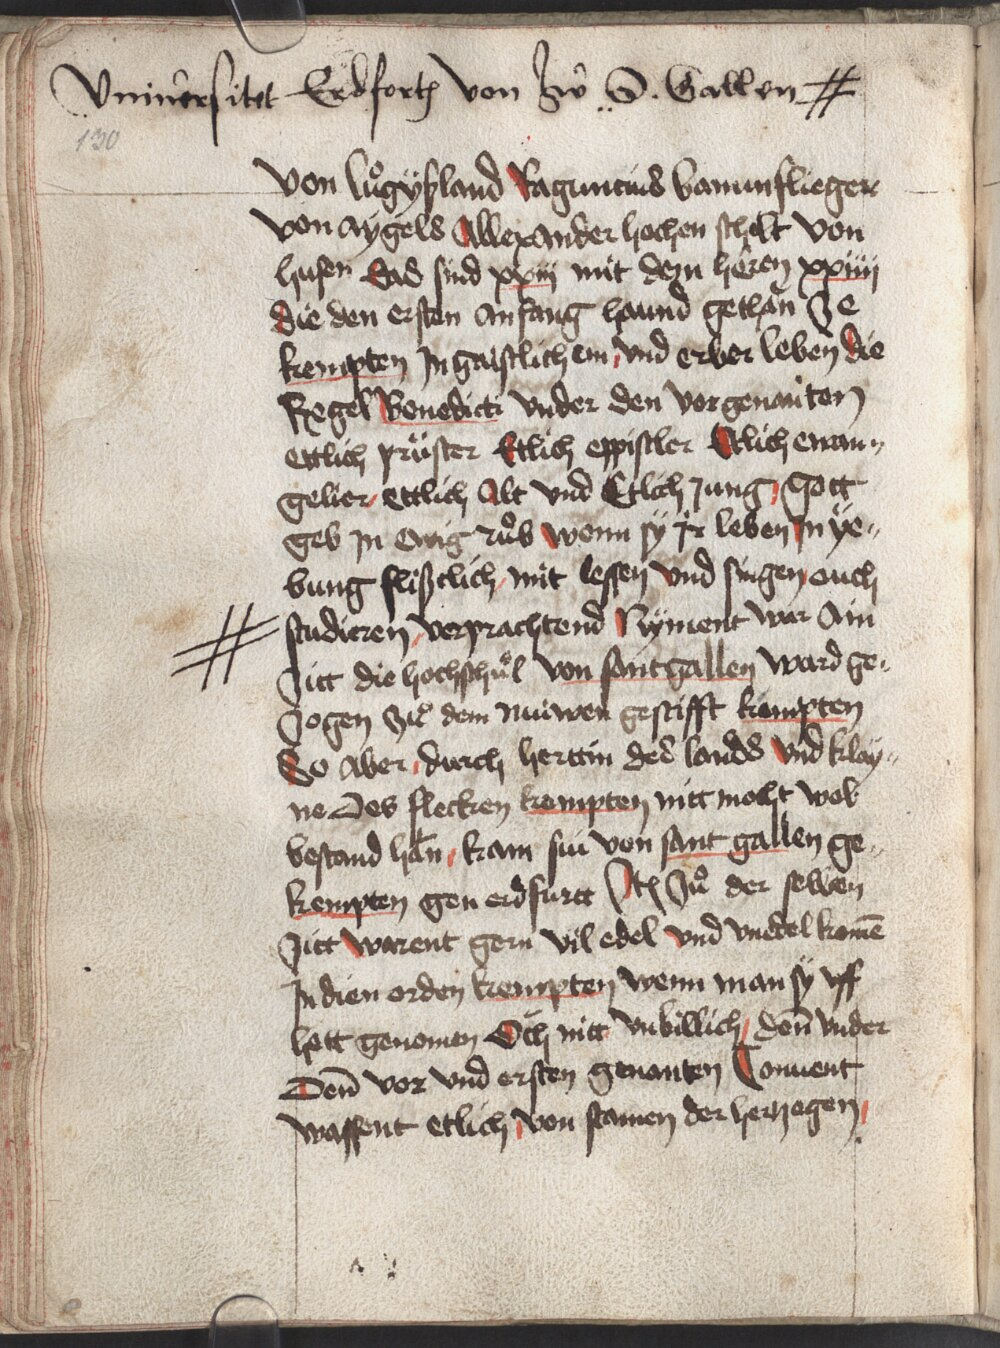 Vniuersitet Erdforth von Zw S. Gallen #
130
von luͦgyßland Raguncius bamunflieger
von aygels Allexander hochen schilt von
husen Das sind xxiij mit dem heren xxiiij
die den ersten anfang haund gethan Ze
kempten In gaistlichem vnd erber leben die
Regel Benedicti vnder den vorgenanten
ettlich prüster Ettlich eppistler Etlich ewan„
gelier ettlich Alt vnd Etlich Jung Gott
geb In ewig Ruͦb wenn sy Jr leben In ye„
bung flißtlich mit lessen vnd singen ouch
# studieren verprachtend Nyment war Ain
Zitt die hochschuͦl von sant gallen ward ge„
Zogen Zuͦ dem nüwen gestifft kempten
So aber durch herttin des lands vnd klay„
ne Des flecken kempten nitt mocht wol
bestand han kam sü von sant gallen ge„
kempten gen erdfurtt Zuͦ der selben
Zitt warent gern vil edel vnd vnedel komē
In dien orden kempten wenn man sy vff
hett genomen Och nitt vnbillich den vnder
Den vor vnd ersten genanten Conuent
waffent etlich von stamen der herzogen